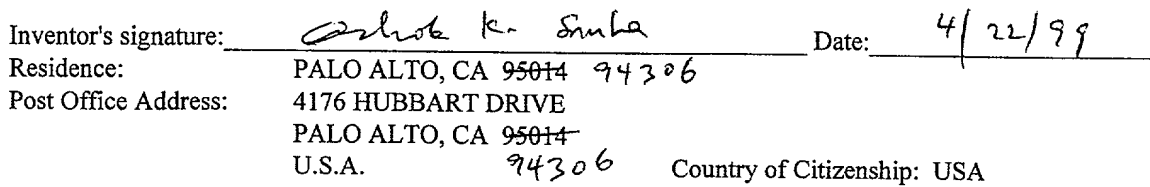 Inventor's signature: Ashok K. Sinha Date: 4/22/99
Residence: PALO ALTO, CA 95014 94306
Post Office Address: 4176 HUBBART DRIVE
PALO ALTO, CA 95014
U.S.A. 94306 Country of Citizenship: USA